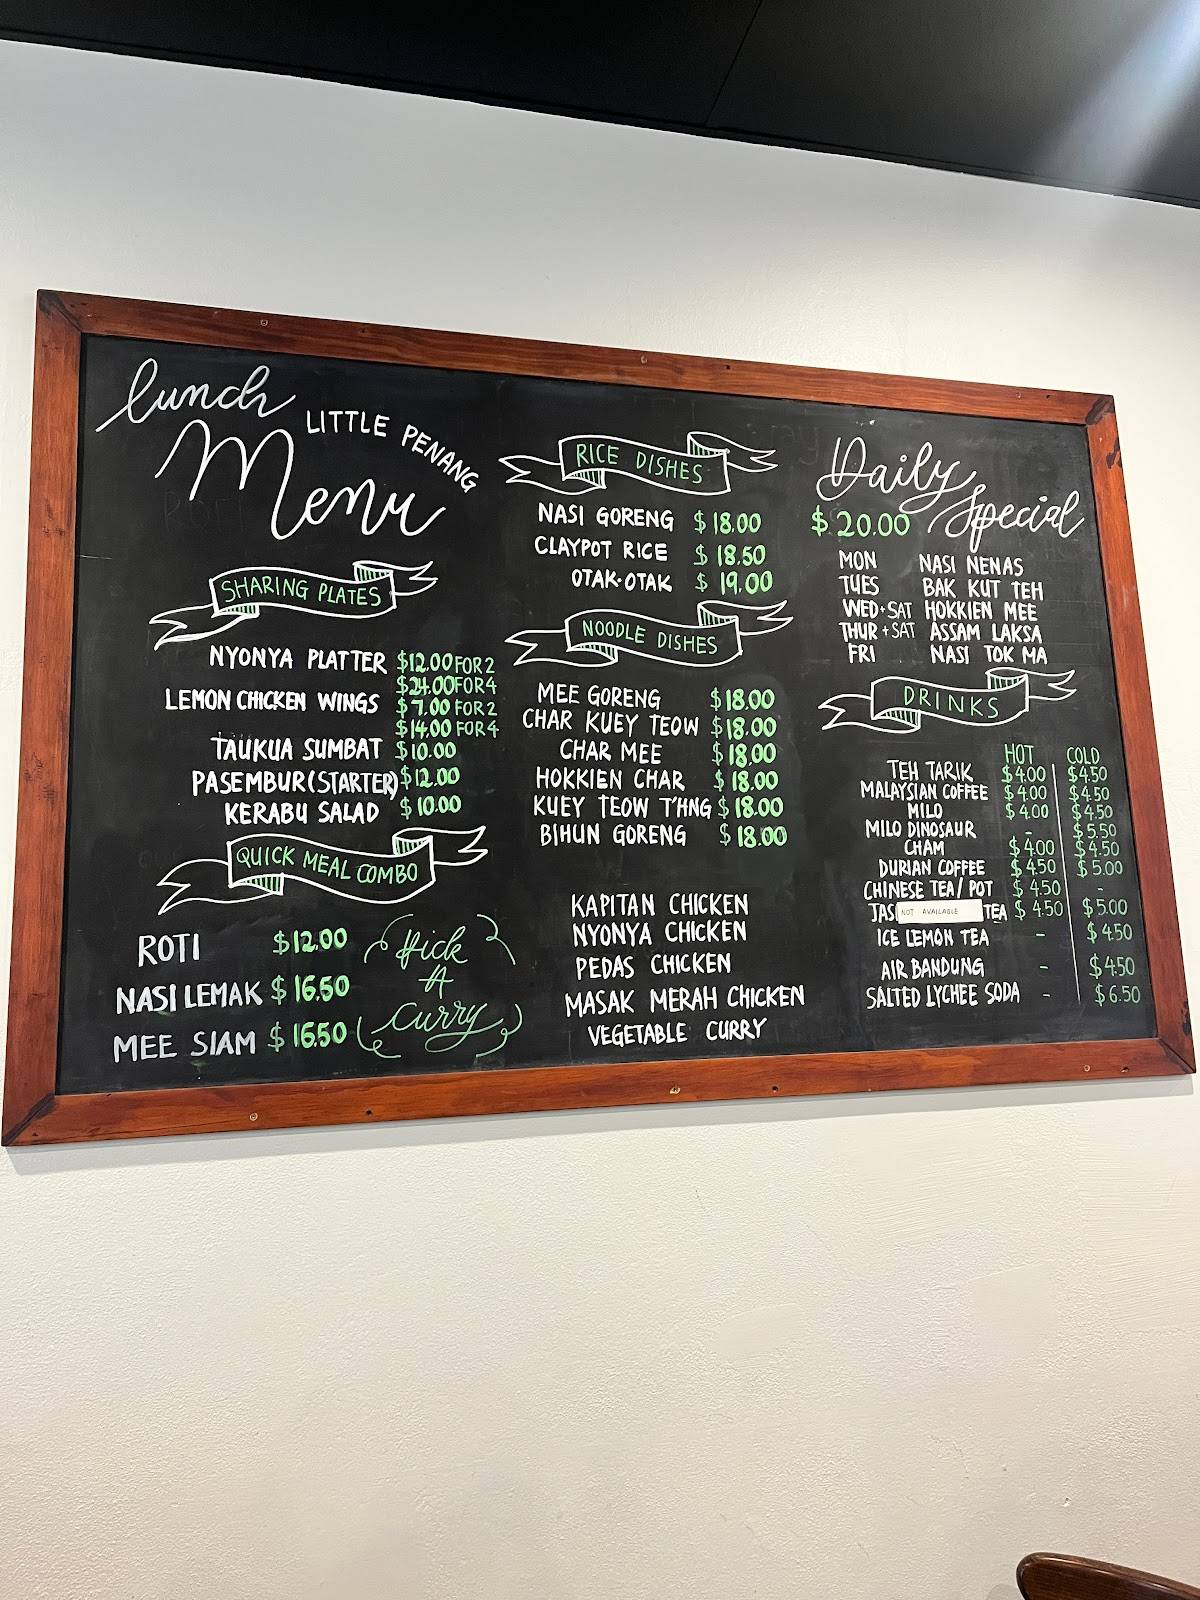 lunch
LITTLE PENANG
Menu
SHARING PLATES
NYONYA PLATTER $12.00 FOR 2
$24.00 FOR 4
LEMON CHICKEN WINGS $7.00 FOR 2
$14.00 FOR 4
TAUKUA SUMBAT $10.00
PASEMBUR(STARTER) $12.00
KERABU SALAD $10.00
QUICK MEAL COMBO
ROTI $12.00
NASI LEMAK $16.50
MEE SIAM $16.50
Pick
A
Curry
RICE DISHES
NASI GORENG $18.00
CLAYPOT RICE $18.50
OTAK-OTAK $19.00
NOODLE DISHES
MEE GORENG $18.00
CHAR KUEY TEOW $18.00
CHAR MEE $18.00
HOKKIEN CHAR $18.00
KUEY TEOW T'HNG $18.00
BIHUN GORENG $18.00
KAPITAN CHICKEN
NYONYA CHICKEN
PEDAS CHICKEN
MASAK MERAH CHICKEN
VEGETABLE CURRY
Daily Special
$20.00
MON NASI NENAS
TUES BAK KUT TEH
WED+SAT HOKKIEN MEE
THUR+SAT ASSAM LAKSA
FRI NASI TOK MA
DRINKS
HOT COLD
TEH TARIK $4.00 $4.50
MALAYSIAN COFFEE $4.00 $4.50
MILO $4.00 $4.50
MILO DINOSAUR - $5.50
CHAM $4.00 $4.50
DURIAN COFFEE $4.50 $5.00
CHINESE TEA/POT $4.50 -
JAS NOT AVAILABLE TEA $4.50 $5.00
ICE LEMON TEA - $4.50
AIR BANDUNG - $4.50
SALTED LYCHEE SODA - $6.50